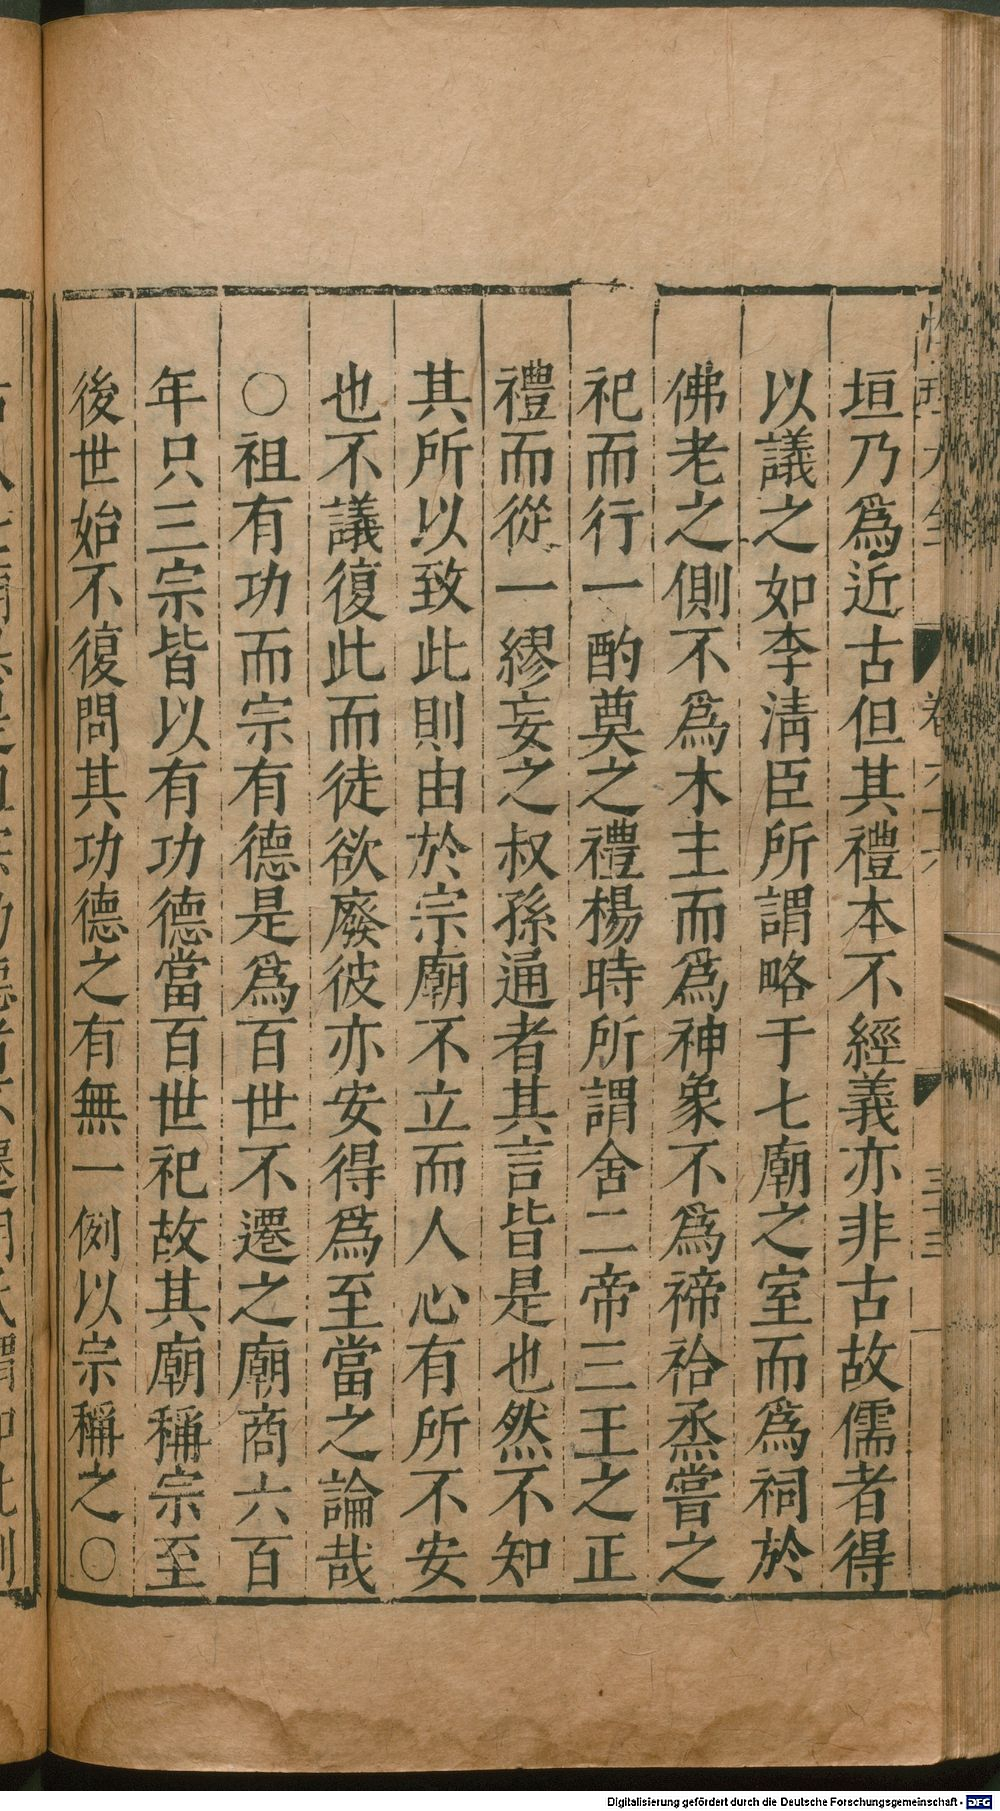 垣乃爲近古但其禮本不經義亦非古故儒者得
以議之如李淸臣所謂略于七廟之室而爲祠於
佛老之側不爲木主而爲神象不爲禘祫烝嘗之
祀而行一酌奠之禮楊時所謂舍二帝三王之正
禮而從一繆妄之叔孫通者其言皆是也然不知
其所以致此則由於宗廟不立而人心有所不安
也不議復此而徒欲廢彼亦安得爲至當之論哉
○祖有功而宗有德是爲百世不遷之廟商六百
年只三宗皆以有功德當百世祀故其廟稱宗至
後世始不復問其功德之有無一例以宗稱之○
Digitalisierung gefördert durch die Deutsche Forschungsgemeinschaft - DFG